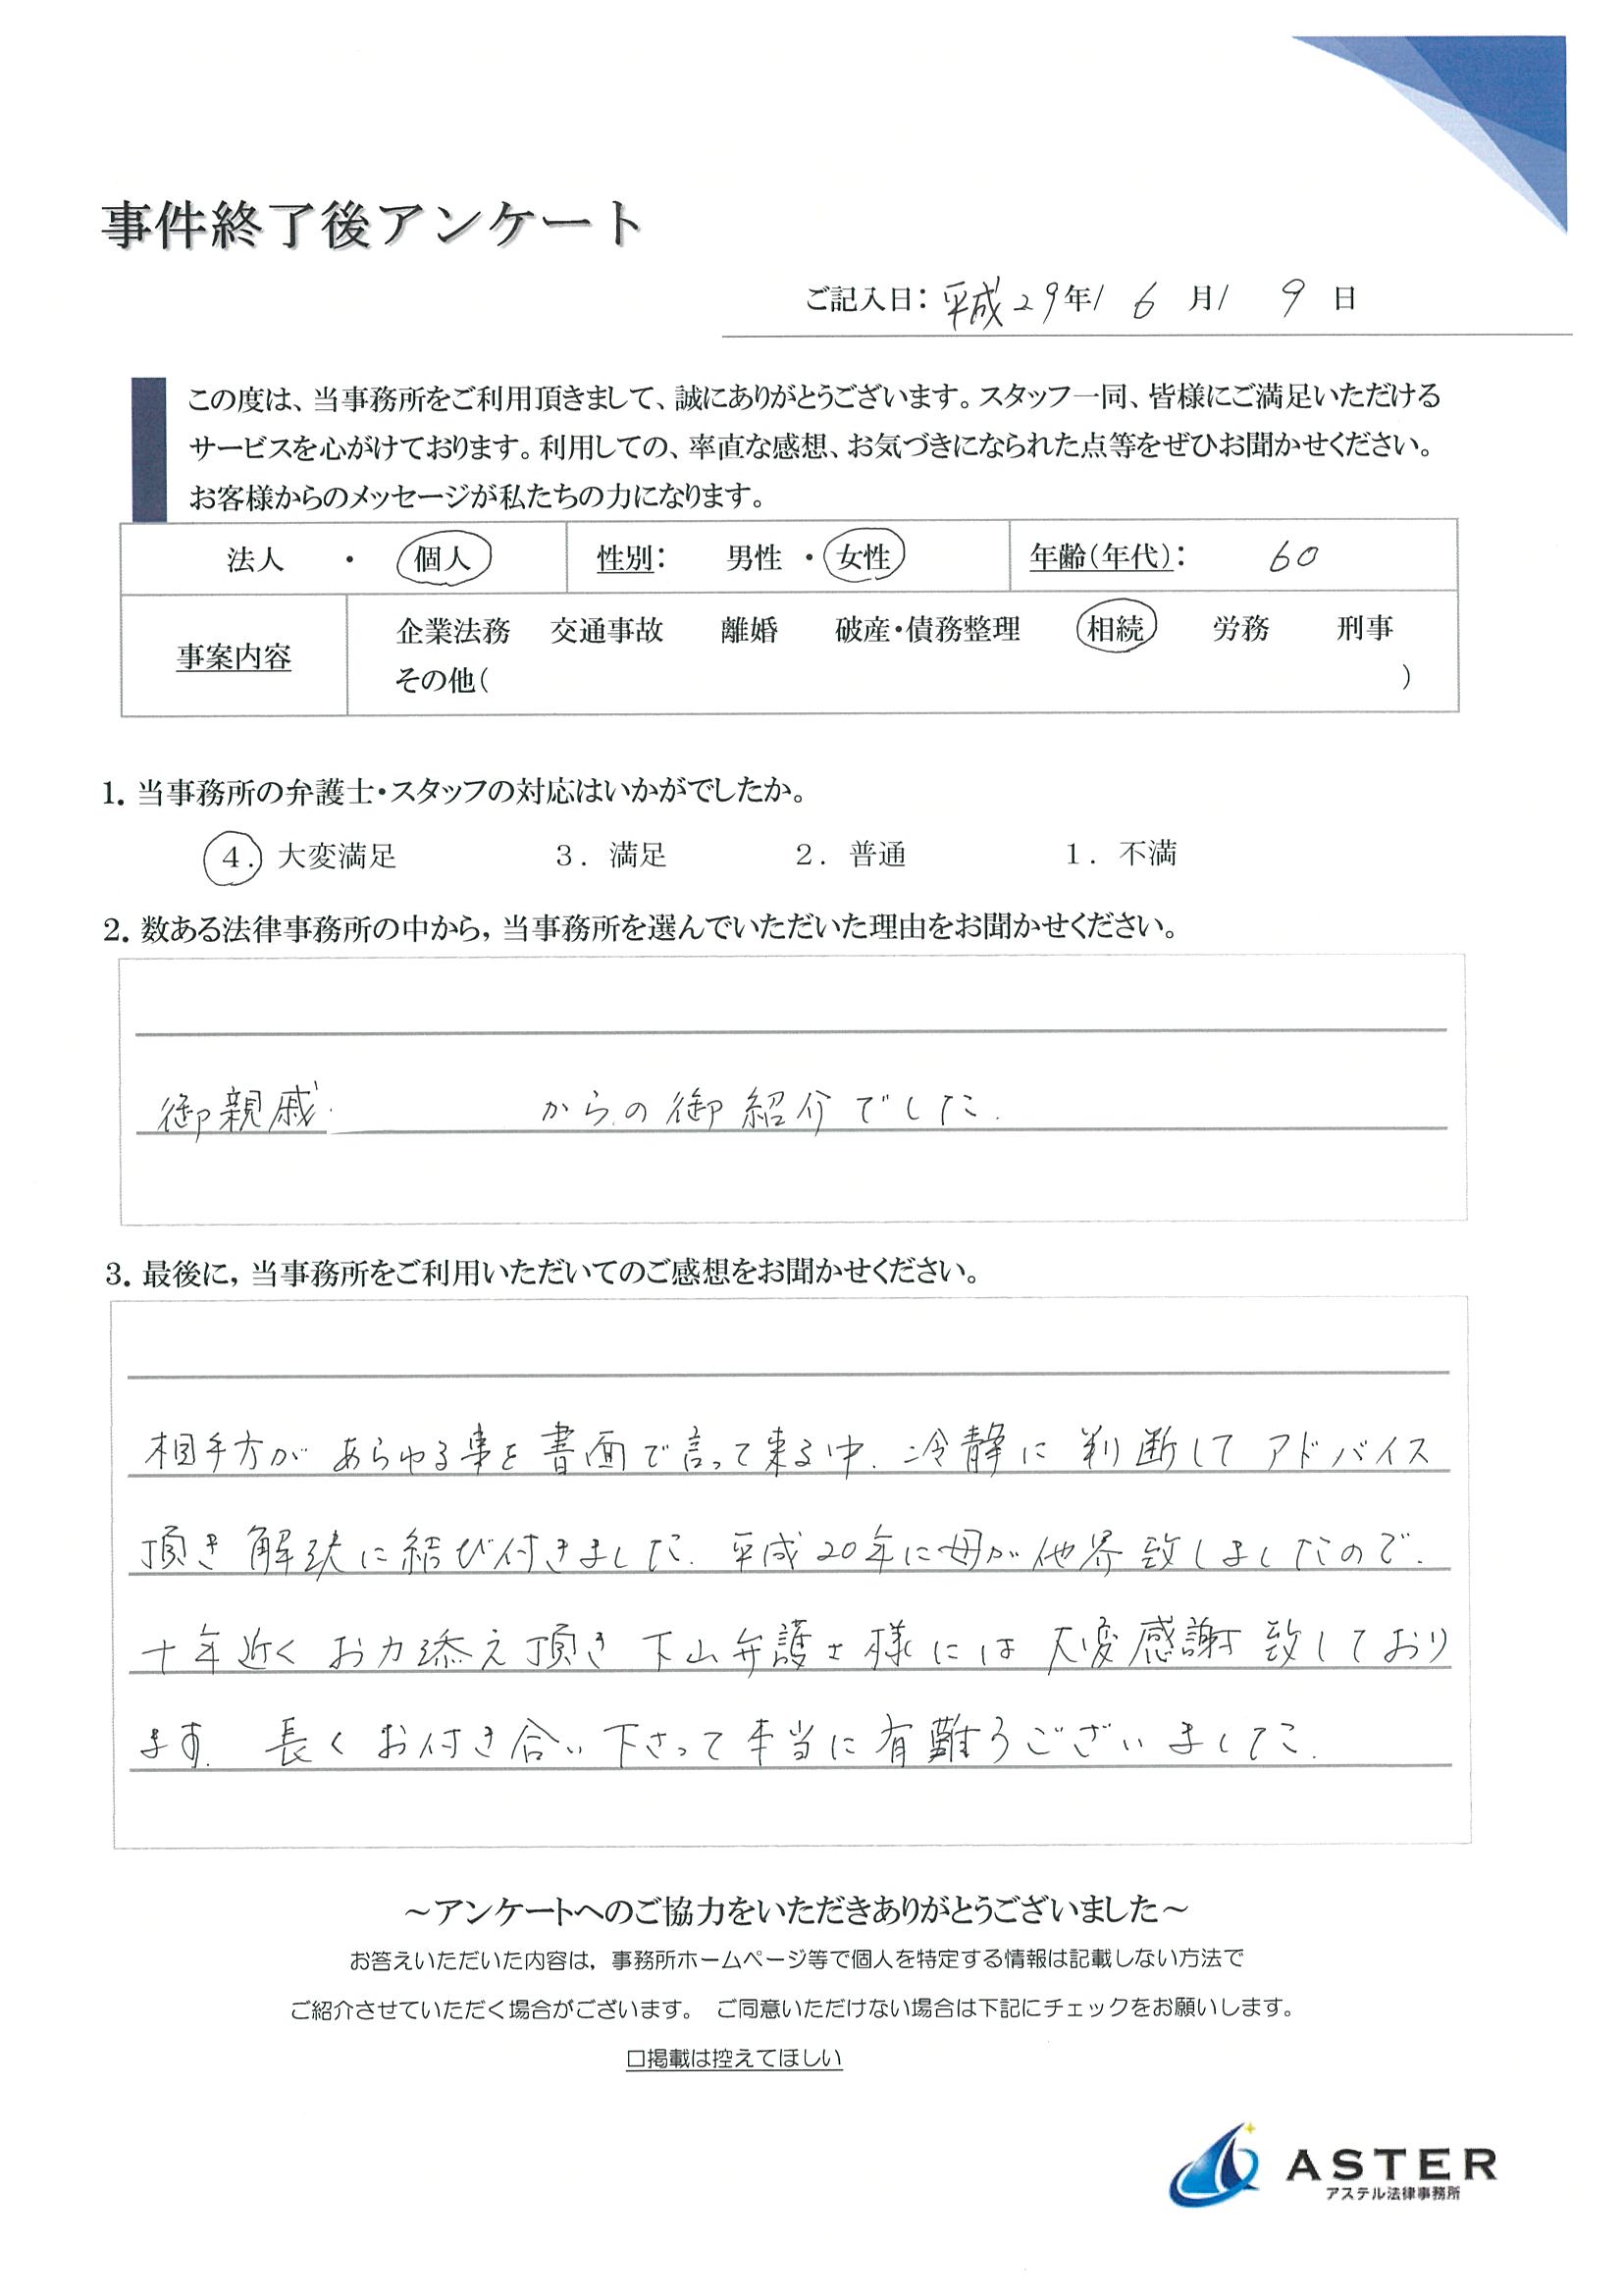 事件終了後アンケート
ご記入日：平成29年/ 6 月/ 9 日
この度は、当事務所をご利用頂きまして、誠にありがとうございます。スタッフ一同、皆様にご満足いただける
サービスを心がけております。利用しての、率直な感想、お気づきになられた点等をぜひお聞かせください。
お客様からのメッセージが私たちの力になります。
法人 ・ 個人 性別： 男性 ・ 女性 年齢（年代）： 60
事案内容 企業法務 交通事故 離婚 破産・債務整理 相続 労務 刑事
その他（ ）
1．当事務所の弁護士・スタッフの対応はいかがでしたか。
4．大変満足 3．満足 2．普通 1．不満
2．数ある法律事務所の中から，当事務所を選んでいただいた理由をお聞かせください。
御親戚 からの御紹介でした.
3．最後に，当事務所をご利用いただいてのご感想をお聞かせください。
相手方が あらゆる事を 書面で言って来る中. 冷静に 判断して アドバイス
頂き 解決に結び付きました. 平成20年に母が他界致しましたので.
十年近く お力添え頂き 下山弁護士様には 大変感謝致しており
ます. 長く お付き合い下さって本当に有難うございました.
～アンケートへのご協力をいただきありがとうございました～
お答えいただいた内容は，事務所ホームページ等で個人を特定する情報は記載しない方法で
ご紹介させていただく場合がございます。 ご同意いただけない場合は下記にチェックをお願いします。
□掲載は控えてほしい
ASTER
アステル法律事務所